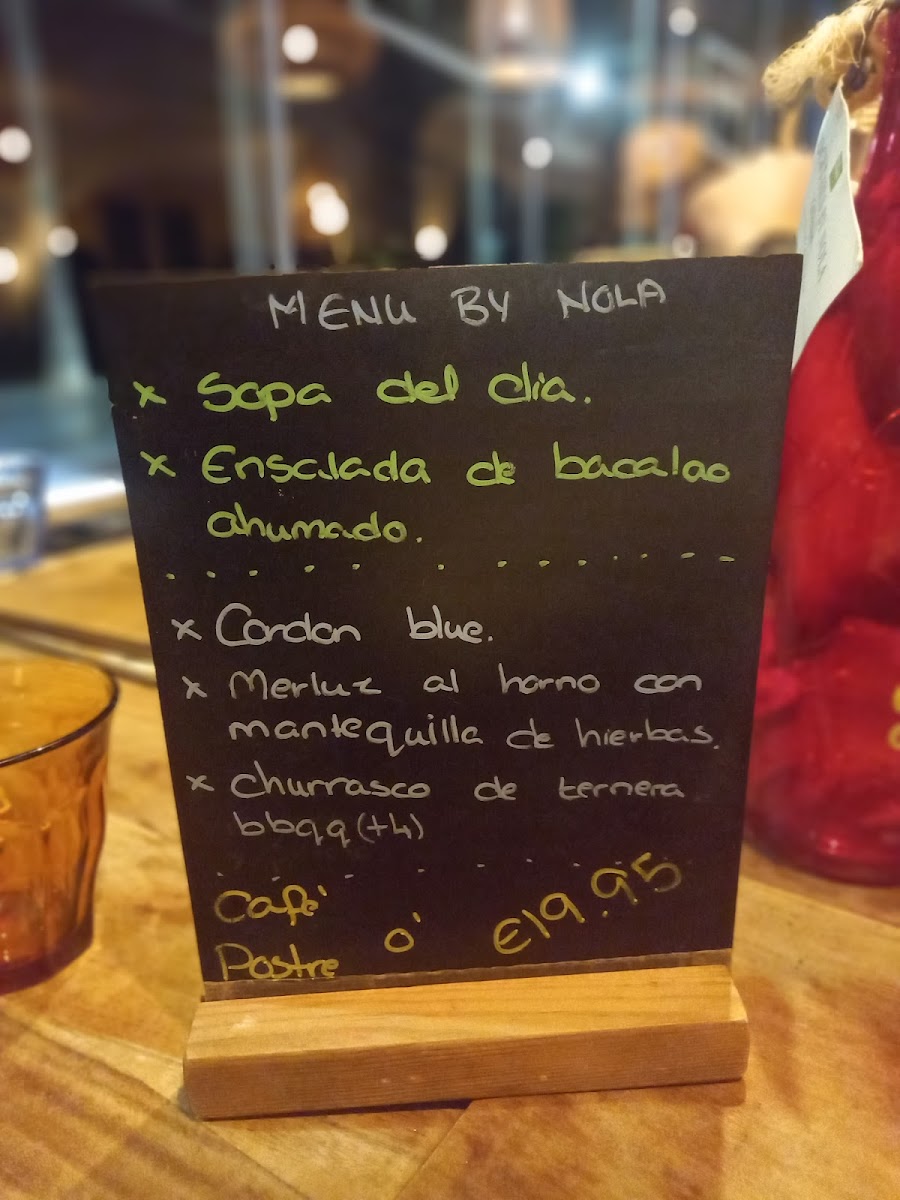 MENU BY NOLA
x Sopa del dia.
x Ensalada de bacalao
ahumado.
x Cordon blue.
x Merluz al horno con
mantequilla de hierbas.
x churrasco de ternera
bbqq (+4)
Café
Postre o' €19.95